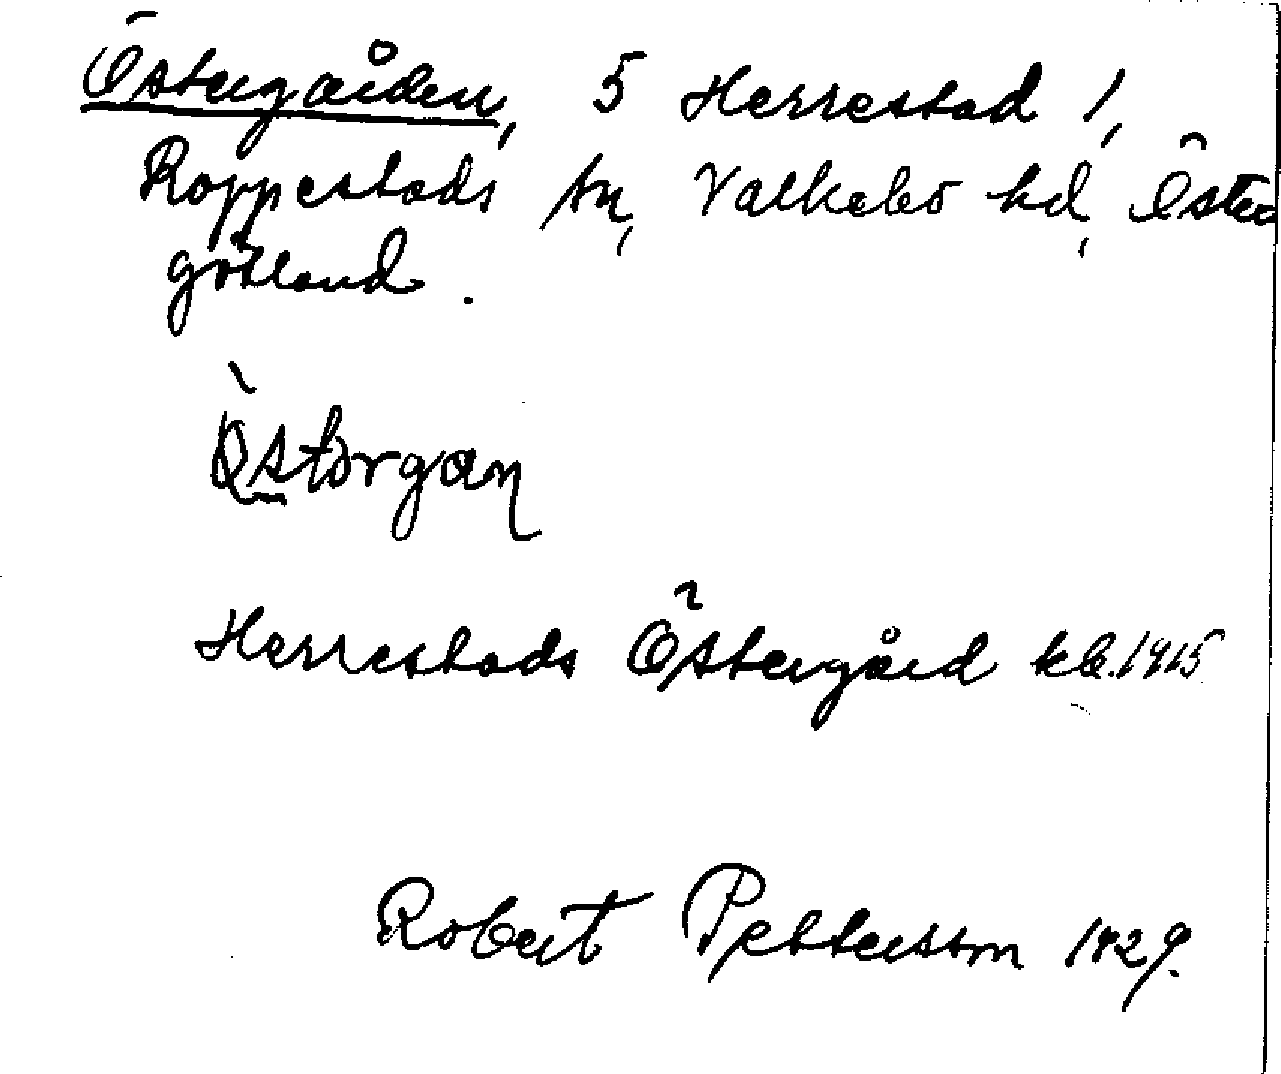 Östergården, 5 Herrestad 1,
Rappestads sn, Valkebo hd, Öster
götland.
Òstərgan
Herrestads Östergård kb. 1915
Robert Pettersson 1929.